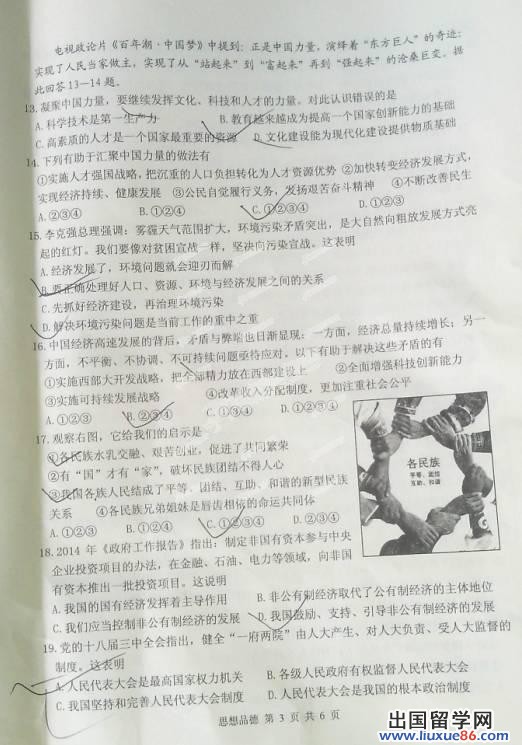 电视政论片《百年潮·中国梦》中提到：正是中国力量，演绎着“东方巨人”的奇迹：
实现了人民当家做主，实现了从“站起来”到“富起来”再到“强起来”的沧桑巨变。据
此回答13—14题。
13.凝聚中国力量，要继续发挥文化、科技和人才的力量。对此认识错误的是
A.科学技术是第一生产力 B.教育越来越成为提高一个国家创新能力的基础
C.高素质的人才是一个国家最重要的资源 D.文化建设能为现代化建设提供物质基础
14.下列有助于汇聚中国力量的做法有
①实施人才强国战略，把沉重的人口负担转化为人才资源优势 ②加快转变经济发展方式，
实现经济持续、健康发展 ③公民自觉履行义务，发扬艰苦奋斗精神 ④不断改善民生
A.②③④ B.①②④ C.①②③④ D.①②③
15.李克强总理强调：雾霾天气范围扩大，环境污染矛盾突出，是大自然向粗放发展方式亮
起的红灯。我们要像对贫困宣战一样，坚决向污染宣战。这表明
A.经济发展了，环境问题就会迎刃而解
B.要正确处理好人口、资源、环境与经济发展之间的关系
C.先抓好经济建设，再治理环境污染
D.解决环境污染问题是当前工作的重中之重
16.中国经济高速发展的背后，矛盾与弊端也日渐显现：一方面，经济总量持续增长；另一
方面，不平衡、不协调、不可持续问题亟待应对，以下有助于解决这些矛盾的有
①实施西部大开发战略，把全部精力放在西部建设上 ②全面增强科技创新能力
③实施可持续发展战略 ④改革收入分配制度，更加注重社会公平
A.①②③ B.②③④ C.①③④ D.①②③④
17.观察右图，它给我们的启示是
①各民族水乳交融、艰苦创业，促进了共同繁荣
②有“国”才有“家”，破坏民族团结不得人心
③我国各族人民结成了平等、团结、互助、和谐的新型民族
关系 ④各民族兄弟姐妹是唇齿相依的命运共同体
A.①②③ B.①②④ C.①③④ D.①②③④
各民族
平等、团结
互助、和谐
18.2014年《政府工作报告》指出：制定非国有资本参与中央
企业投资项目的办法，在金融、石油、电力等领域，向非国
有资本推出一批投资项目。这说明
A.我国的国有经济发挥着主导作用 B.非公有制经济取代了公有制经济的主体地位
C.我们应当控制非公有制经济的发展 D.我国鼓励、支持、引导非公有制经济的发展
19.党的十八届三中全会指出，健全“一府两院”由人大产生、对人大负责、受人大监督的
制度。这表明
A.人民代表大会是最高国家权力机关 B.各级人民政府有权监督人民代表大会
C.我国坚持和完善人民代表大会制度 D.人民代表大会是我国的根本政治制度
思想品德 第3页共6页
出国留学网
www.liuxue86.com